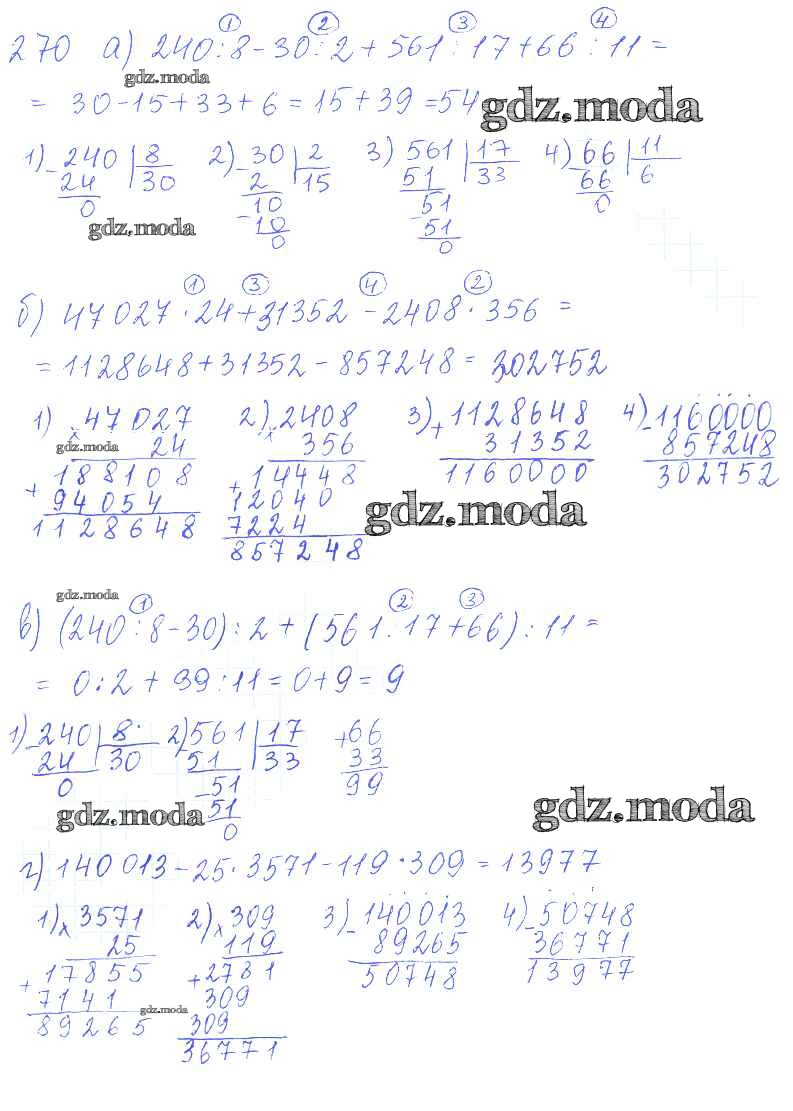 ① ② ③ ④
270 а) 240:8-30:2+561:17+66:11=
gdz.moda
= 30-15+33+6=15+39=54
gdz.moda
1) 240 8 2) 30 2 3) 561 17 4) 66 11
24 30 2 15 51 33 66 6
0 10 51 0
10 51
0 0
gdz.moda
① ③ ④ ②
б) 47027·24+31352-2408·356=
=1128648+31352-857248=302752
1) 47027 2) 2408 3) 1128648 4) 1160000
× 24 × 356 + 31352 - 857248
gdz.moda
+ 188108 + 14448 1160000 302752
94054 12040
1128648 7224
857248
gdz.moda
gdz.moda
① ② ③
в) (240:8-30):2+(561:17+66):11=
= 0:2+39:11=0+9=9
1) 240 8 2) 561 17 +66
24 30 51 33 33
0 51 99
51
0
gdz.moda
gdz.moda
г) 140013-25·3571-119·309=13977
1) × 3571 2) × 309 3) - 140013 4) - 50748
25 119 89265 36771
+ 17855 + 2781 50748 13977
7141 309
89265 309
36771
gdz.moda